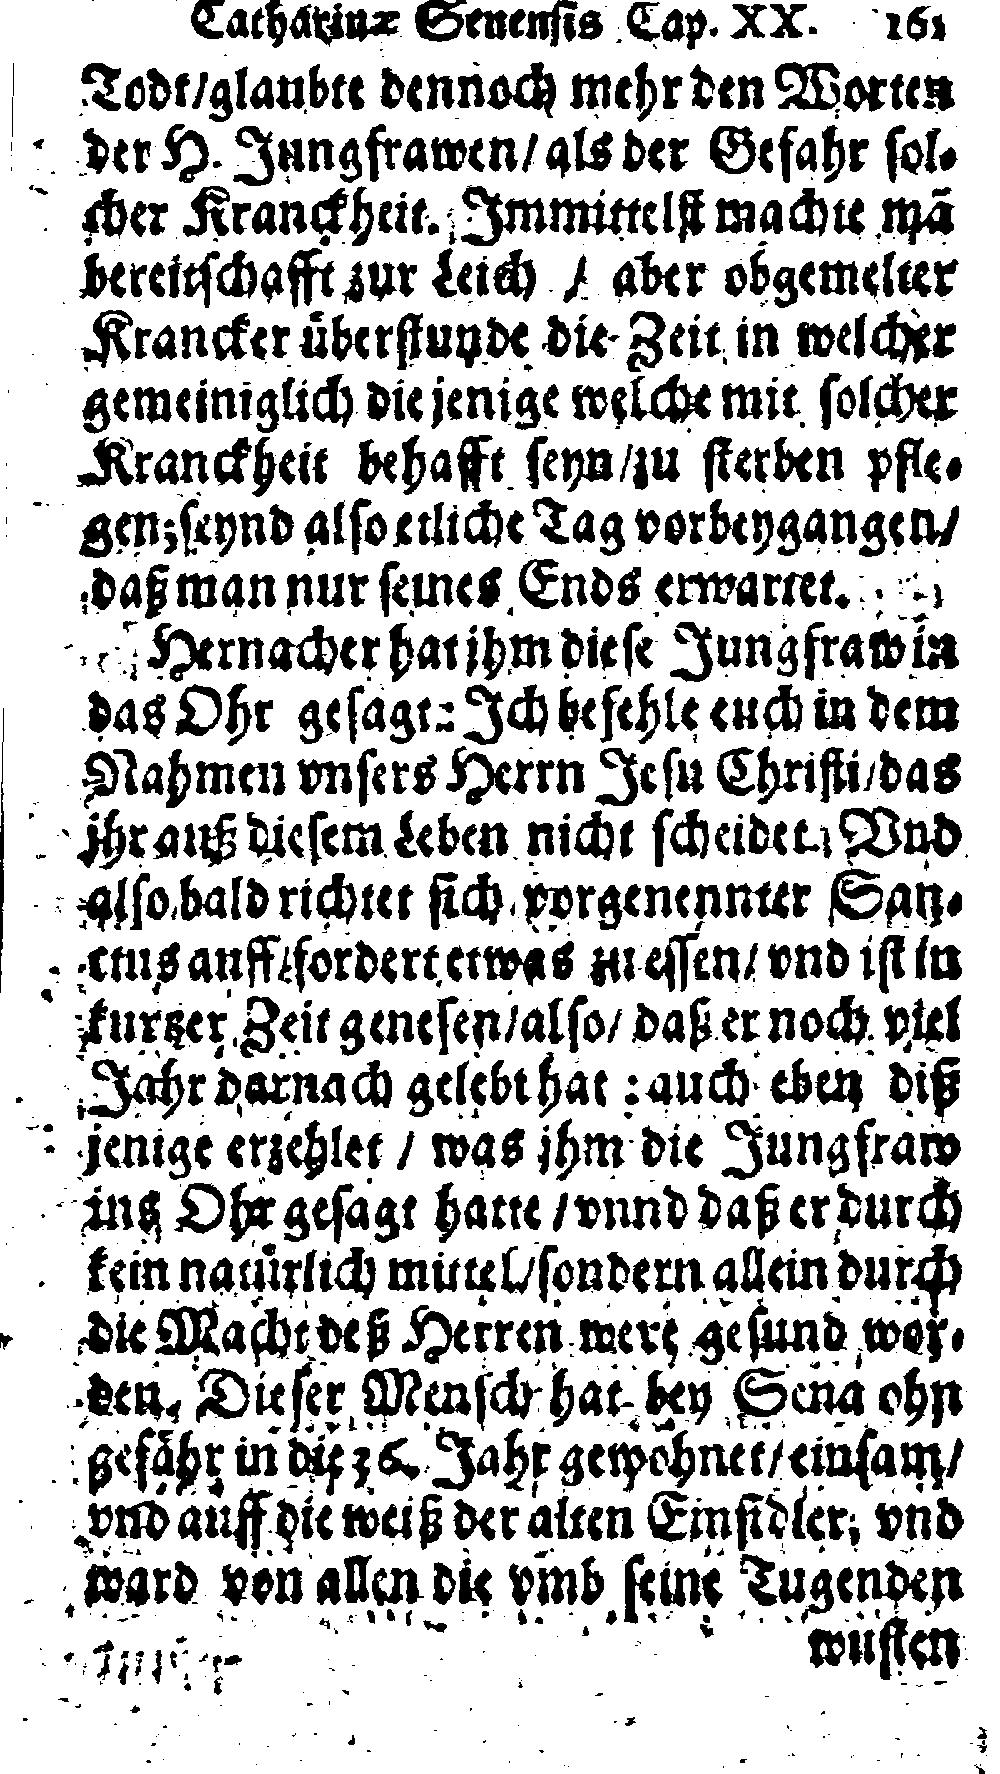 Catharinæ Senensis Cap. XX. 161
Todt/glaubte dennoch mehr den Worten
der H. Jungfrawen/ als der Gefahr sol-
cher Kranckheit. Immittelst machte mã
bereitschafft zur Leich / aber obgemelter
Krancker überstunde die Zeit in welcher
gemeiniglich die jenige welche mit solcher
Kranckheit behafft seyn/zu sterben pfle-
gen; seynd also etliche Tag vorbeygangen/
daß man nur seines Ends erwartet.
Hernacher hat jhm diese Jungfraw in
das Ohr gesagt: Ich befehle euch in dem
Nahmen vnsers Herrn Jesu Christi/das
jhr auß diesem Leben nicht scheidet. Vnd
also bald richtet sich vorgenennter San-
ctus auff/fordert etwas zu essen/ vnd ist in
kurtzer Zeit genesen/also/ daß er noch viel
Jahr darnach gelebt hat : auch eben diß
jenige erzehlet / was jhm die Jungfraw
ins Ohr gesagt hatte / vnnd daß er durch
kein natürlich mittel/sondern allein durch
die Macht deß Herren were gesund wor-
den. Dieser Mensch hat bey Sena ohn
gefähr in die 36. Jahr gewohnet/ einsam/
vnd auff die weiß der alten Einsidler, vnd
ward von allen die vmb seine Tugenden
wusten